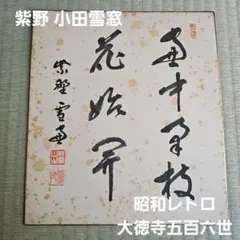 紫野 小田雪窓
中 枝
花始開
紫野 雪窓
昭和レトロ
大徳寺五百六世